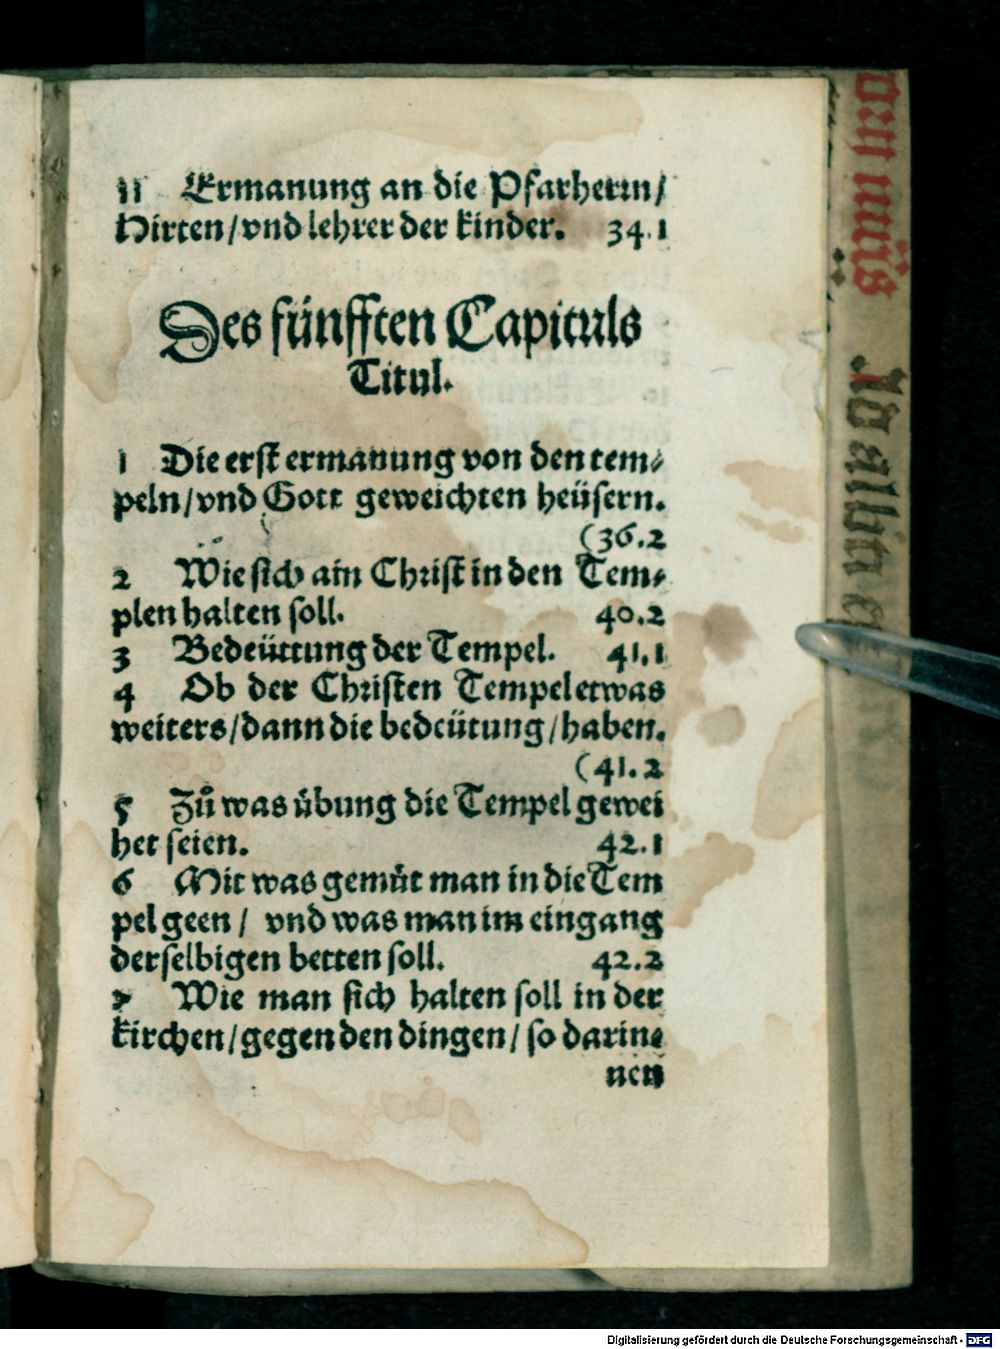 11 Ermanung an die Pfarherrn/
Hirten/vnd lehrer der kinder. 34.1
Des fünfften Capituls
Titul.
1 Die erst ermanung von den tem⸗
peln/vnd Gott geweichten heüsern.
(36.2
2 Wie sich ain Christ in den Tem⸗
plen halten soll. 40.2
3 Bedeüttung der Tempel. 41.1
4 Ob der Christen Tempel etwas
weiters/dann die bedeütung/haben.
(41.2
5 Zů was übung die Tempel gewei
het seien. 42.1
6 Mit was gemüt man in die Tem
pel geen/ vnd was man im eingang
derselbigen betten soll. 42.2
7 Wie man sich halten soll in der
kirchen/gegen den dingen/so darin⸗
nen
Digitalisierung gefördert durch die Deutsche Forschungsgemeinschaft - DFG